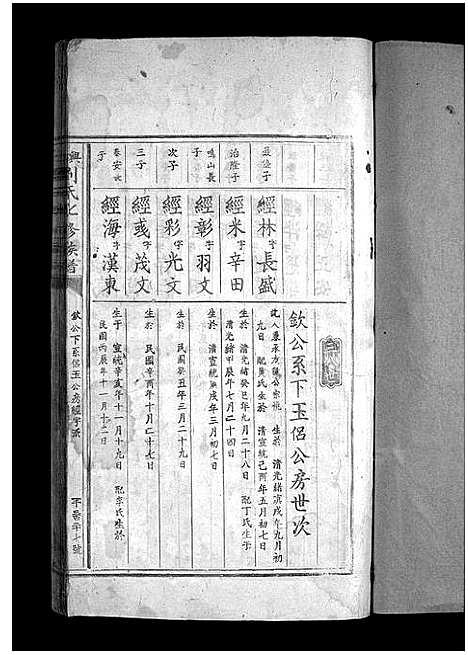 欽公系下玉侶公房世次
經林字長盛
九日 配黃氏生於 清宣統己酉年五月初七日
治隆子
經米字辛田
生於 清光緒癸巳年九月二十八日 配丁氏生于
清光緒甲辰年七月二十四日
鳴山長子
經彰字羽文
生於 清宣統庚戌年三月初七日
次子
經彩字光文
生於 民國癸丑年三月二十九日
三子
經彧字茂文
生於 民國辛酉年十月二十七日
經海字漢東
生于 宣統辛亥年十一月十九日 配李氏生於
民國丙辰年十一月十二日
興劉氏七修族譜
欽公下系侶玉公房經字派